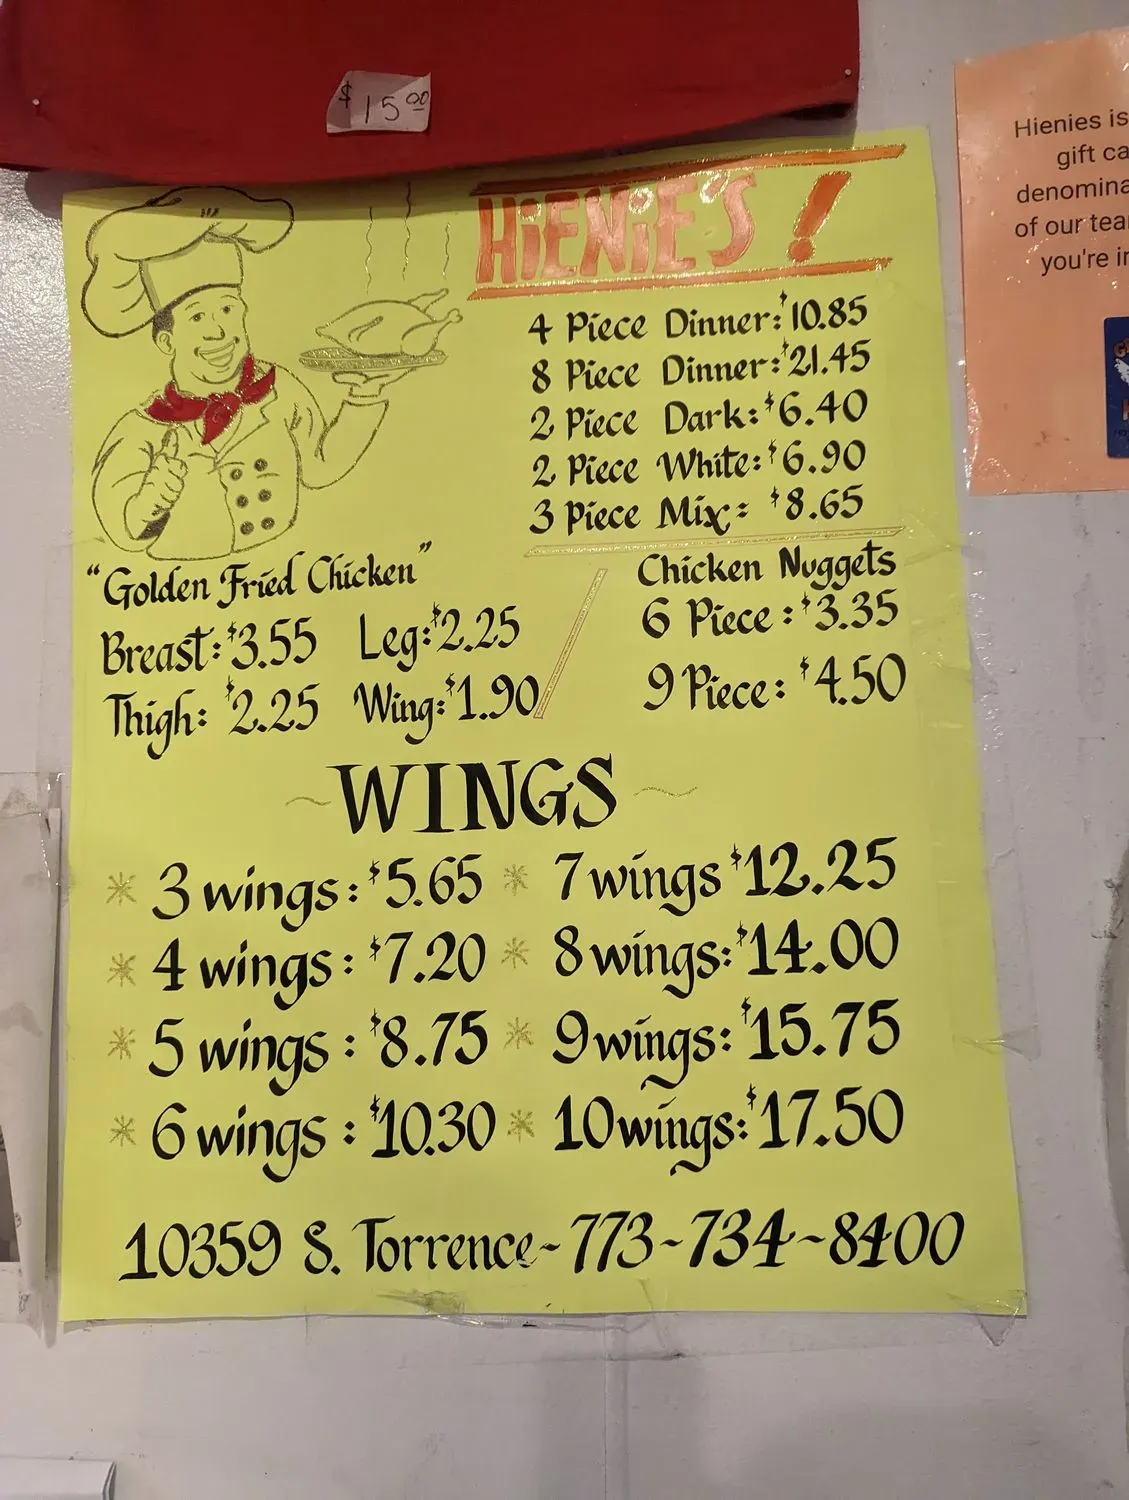 $15.00
HiENiE'S!
4 Piece Dinner: $10.85
8 Piece Dinner: $21.45
2 Piece Dark: $6.40
2 Piece White: $6.90
3 Piece Mix: $8.65
"Golden Fried Chicken"
Breast: $3.55 Leg: $2.25
Thigh: $2.25 Wing: $1.90
Chicken Nuggets
6 Piece: $3.35
9 Piece: $4.50
~WINGS~
* 3 wings: $5.65 * 7 wings $12.25
* 4 wings: $7.20 * 8 wings: $14.00
* 5 wings: $8.75 * 9 wings: $15.75
* 6 wings: $10.30 * 10 wings: $17.50
10359 S. Torrence~773~734~8400
Hienies is
gift ca
denomina
of our tea
you're i